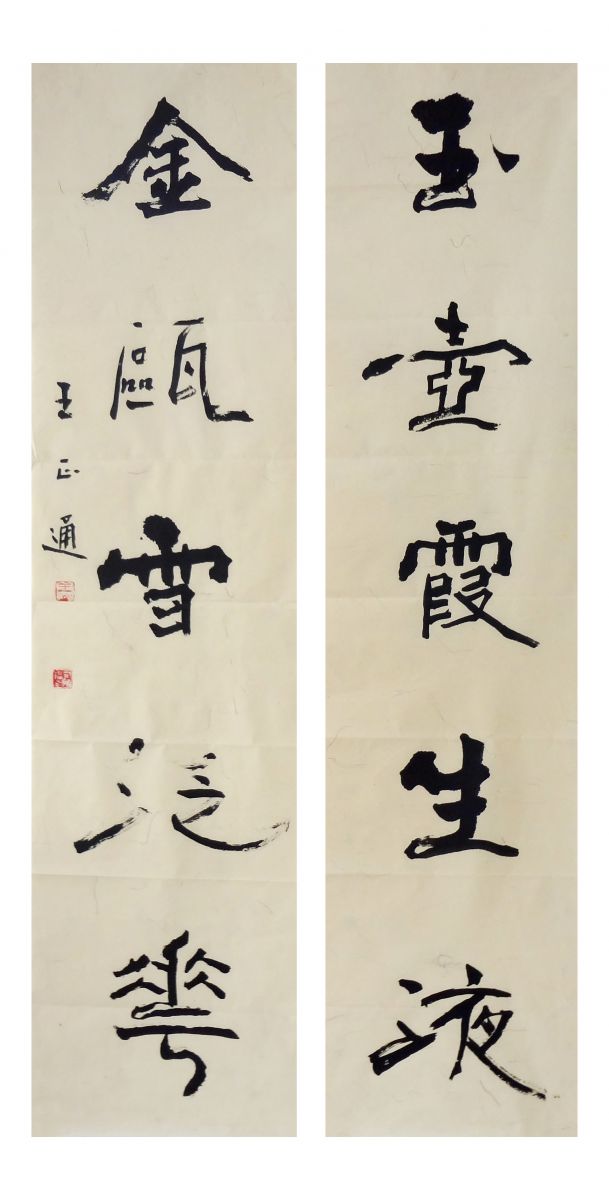 玉壺霞生液
金甌雪泛華
王正通